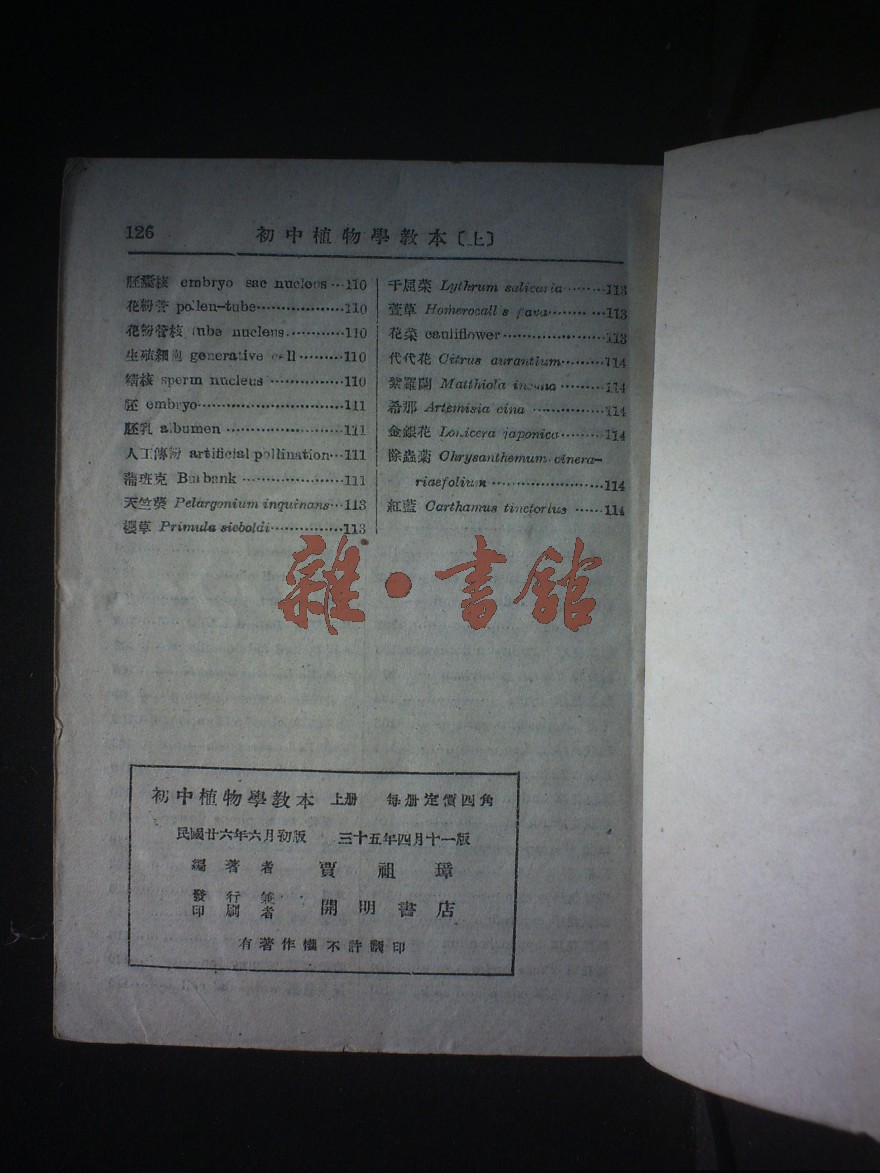 126 初中植物學教本〔上〕
胚囊核 embryo sac nucleus 110
花粉管 pollen-tube 110
花粉管核 tube nucleus 110
生殖細胞 generative cell 110
精核 sperm nucleus 110
胚 embryo 111
胚乳 albumen 111
人工傳粉 artificial pollination 111
蒲班克 Burbank 111
天竺葵 Pelargonium inquinans 113
櫻草 Primula sieboldi 113
千屈菜 Lythrum salicaria 113
萱草 113
花菜 cauliflower 113
代代花 Citrus aurantium 114
紫羅闌 Matthiola incana 114
希那 Artemisia cina 114
金銀花 Lonicera japonica 114
除蟲菊 Chrysanthemum cinera-
riaefolium 114
紅藍 Carthamus tinctorius 114
雜・書館
初中植物學教本 上册 每册定價四角
民國廿六年六月初版 三十五年四月十一版
編著者 賈祖璋
發行兼
印刷者 開明書店
有著作權不許翻印